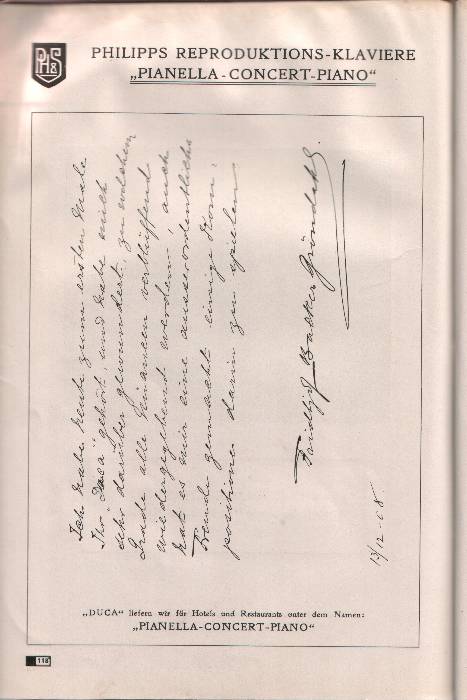 P&S
PHILIPPS REPRODUKTIONS-KLAVIERE
„PIANELLA-CONCERT-PIANO“
Ich habe heute zum ersten Male
Ihr „Duca“ gehört, und habe mich
sehr darüber gewundert, zu welchem
Grade alle Nüancen verblüffend
wiedergegeben werden; auch
hat es mir eine ausserordentliche
Freude gemacht einige Kom-
positionen darin zu spielen
Fridtjof Backer Gröndahl.
13/12-08
„DUCA“ liefern wir für Hotels und Restaurants unter dem Namen:
„PIANELLA-CONCERT-PIANO“
118